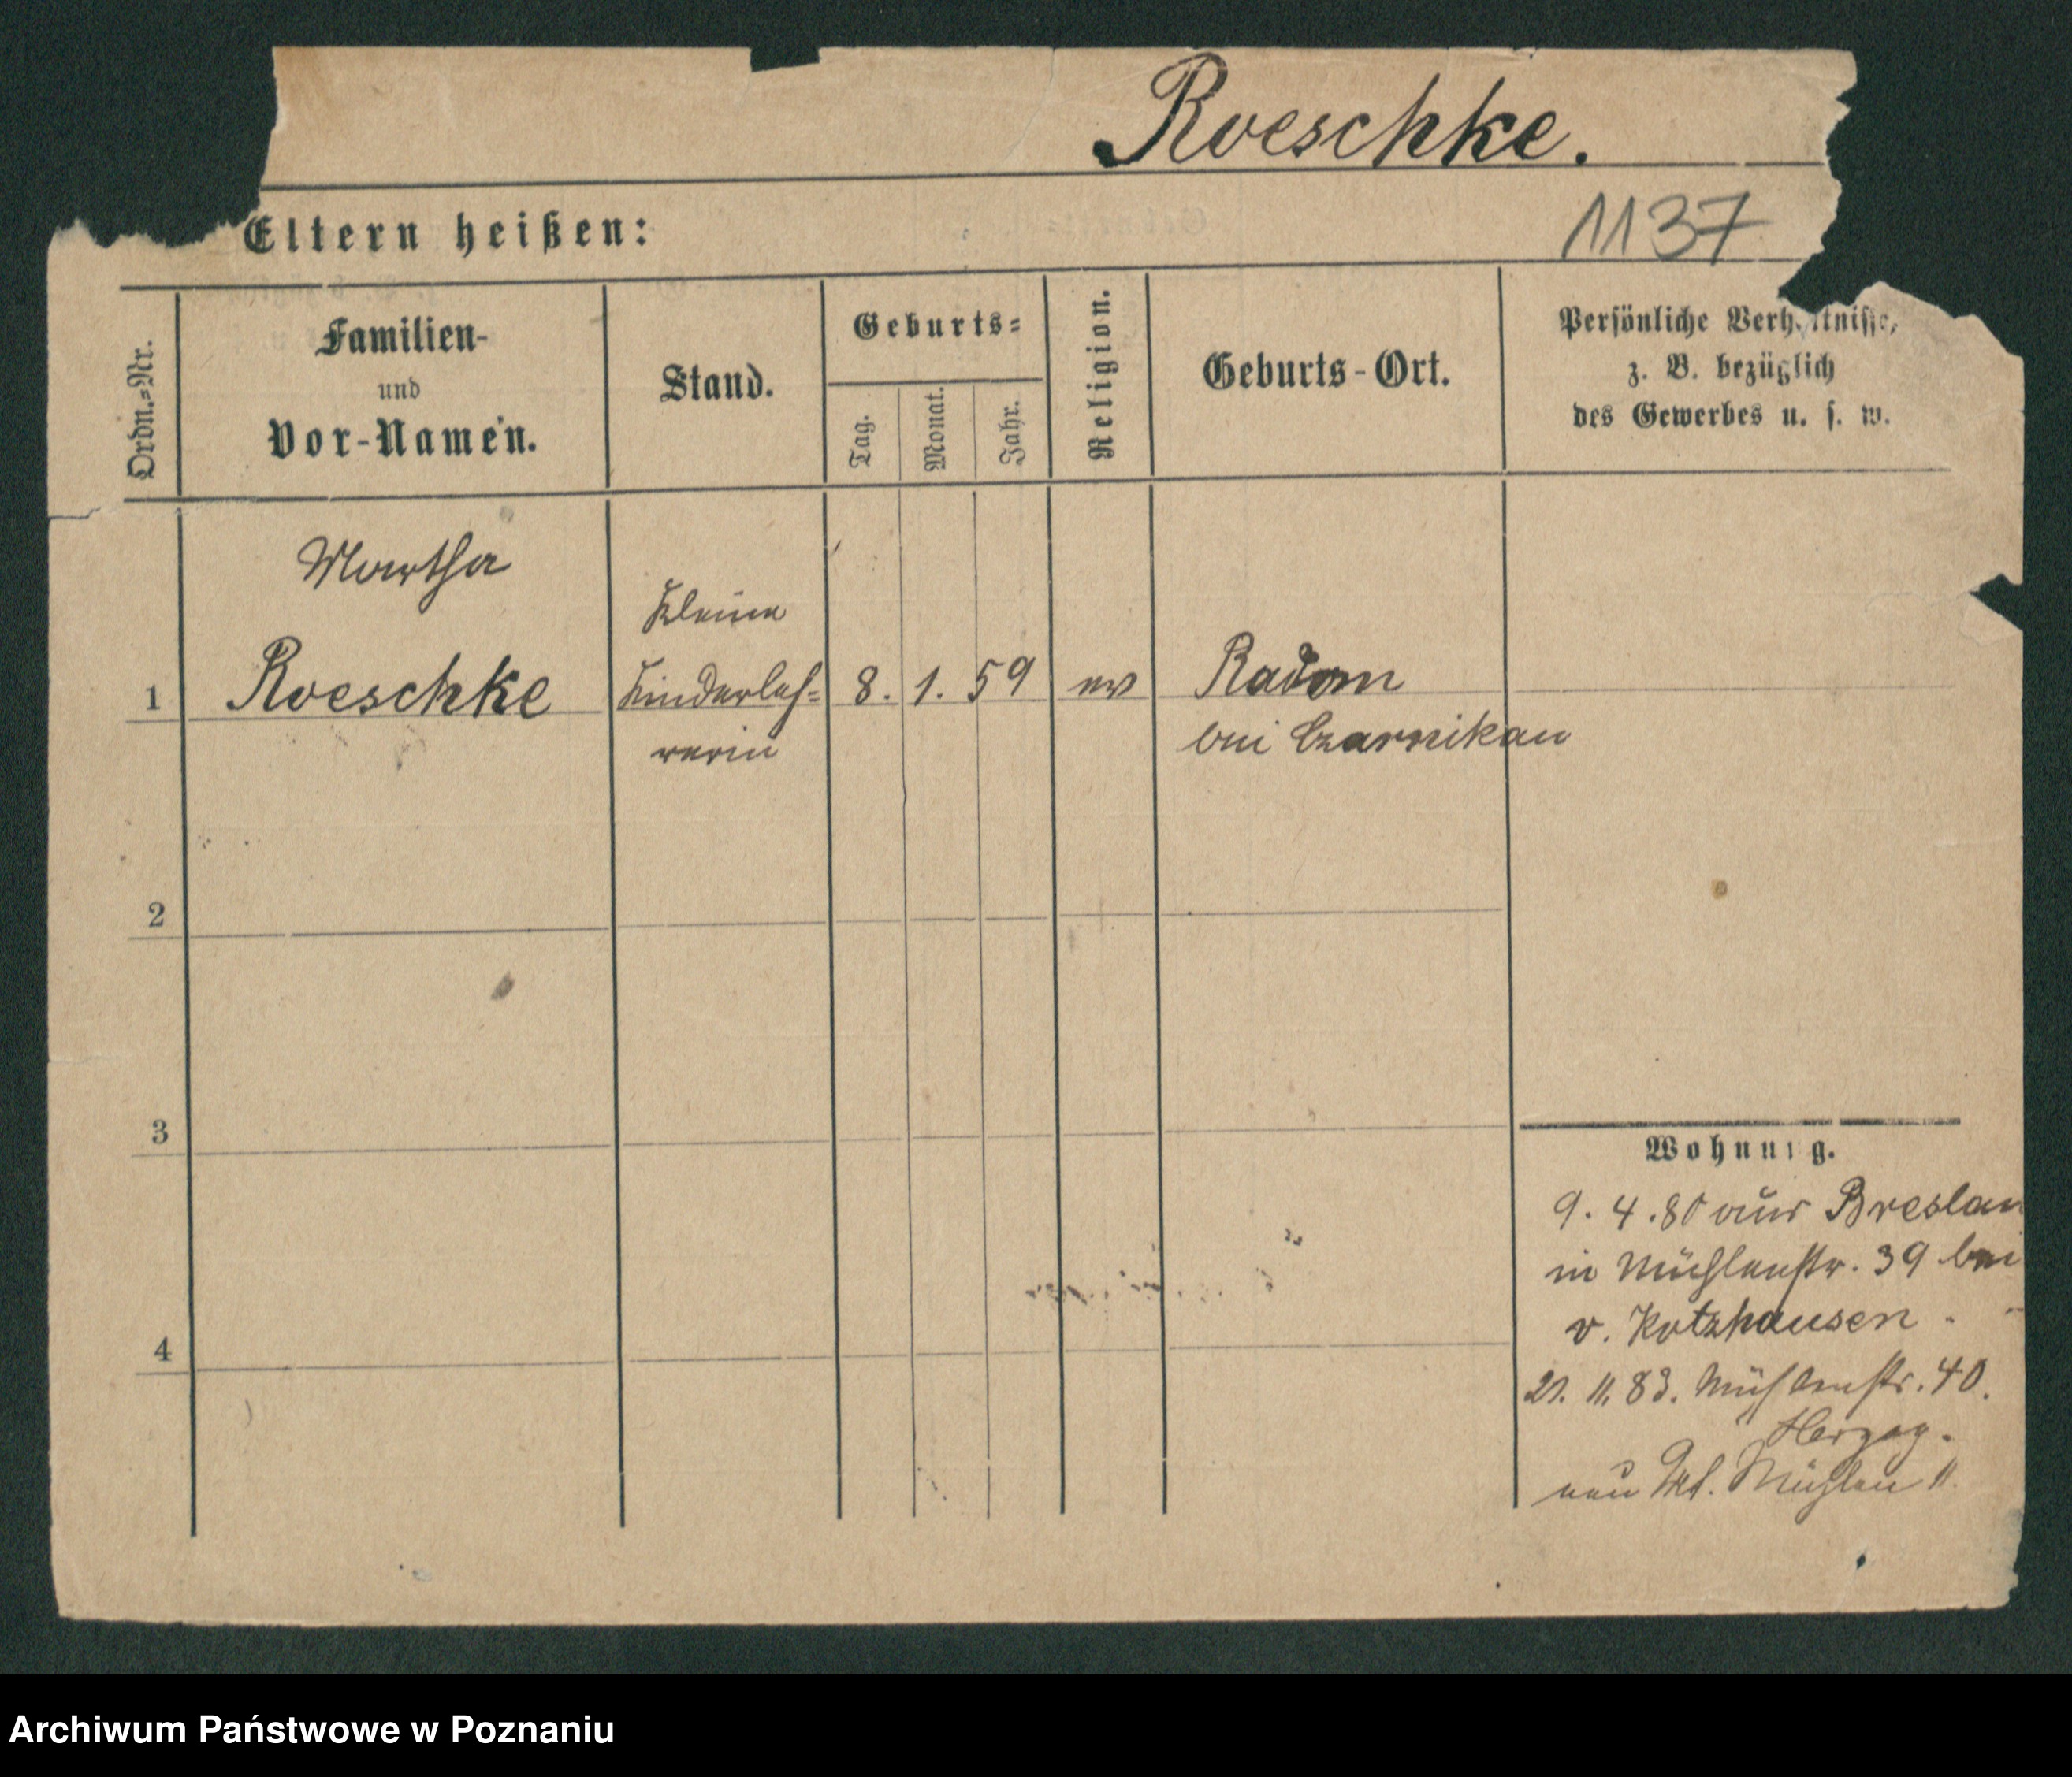 Roeschke.
1137
Eltern heißen:
Ordn.=Nr.
Familien-
und
Vor-Namen.
Stand.
Geburts=
Tag.
Monat.
Jahr.
Religion.
Geburts-Ort.
Persönliche Verhältnisse,
z. B. bezüglich
des Gewerbes u. s. w.
Martha
Roeschke
Kleine
Kinderleh=
rerin
1
8. 1. 59
ev
Radom
bei Czarnikau
2
3
4
Wohnung.
9. 4. 80 aus Breslau
in Mühlenstr. 39 bei
v. Kotzhausen.
21. 11. 83. Mühlenstr. 40.
Herzog.
neu Mühlen 11
Archiwum Państwowe w Poznaniu